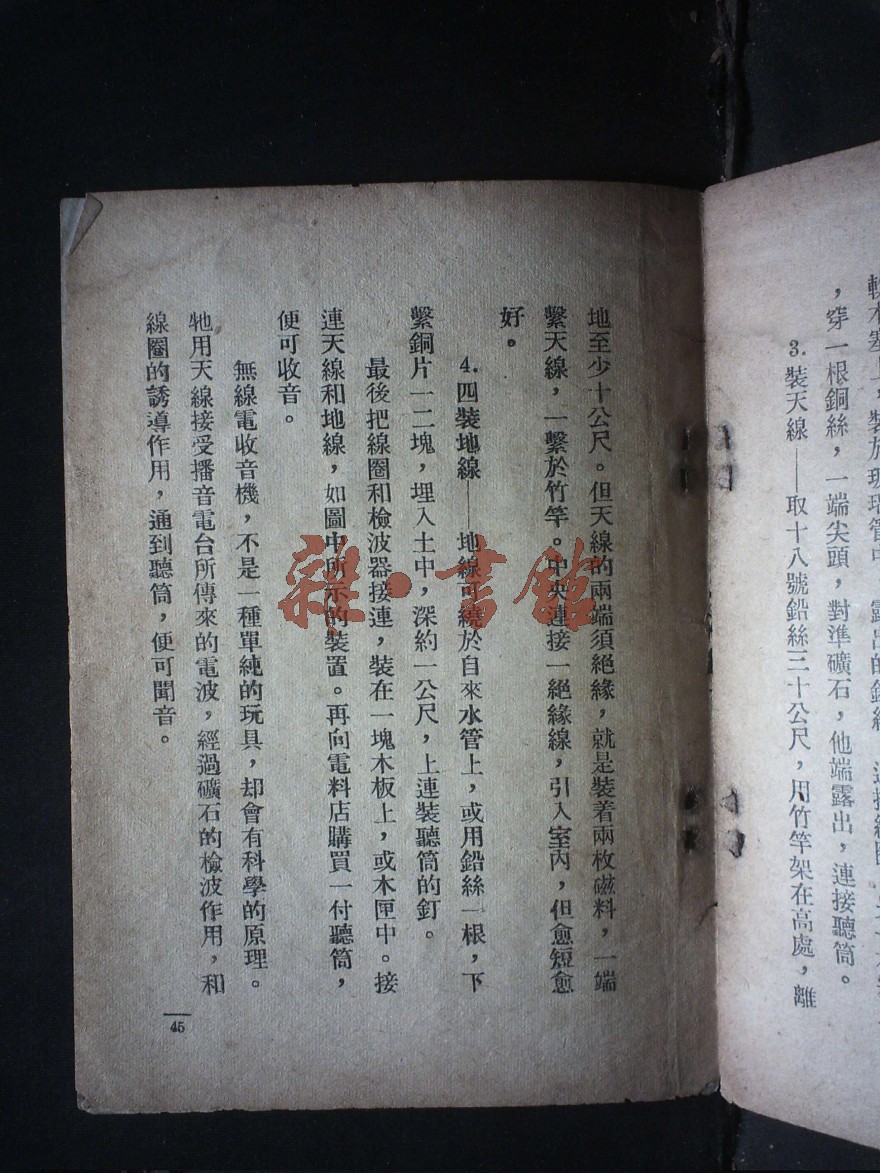 軟木塞上，裝於玻璃管中，露出的銅絲，連接線圈
，穿一根銅絲，一端尖頭，對準礦石，他端露出，連接聽筒。
3.裝天線——取十八號鉛絲三十公尺，用竹竿架在高處，離
地至少十公尺。但天線的兩端須絕緣，就是裝着兩枚磁料，一端
繫天線，一繫於竹竿。中央連接一絕緣線，引入室內，但愈短愈
好。
4.四裝地線——地線可繞於自來水管上，或用鉛絲一根，下
繫銅片一二塊，埋入土中，深約一公尺，上連裝聽筒的釘。
最後把線圈和檢波器接連，裝在一塊木板上，或木匣中。接
連天線和地線，如圖中所示的裝置。再向電料店購買一付聽筒，
便可收音。
無線電收音機，不是一種單純的玩具，却會有科學的原理。
牠用天線接受播音電台所傳來的電波，經過礦石的檢波作用，和
線圈的誘導作用，通到聽筒，便可聞音。
45
雜·書館